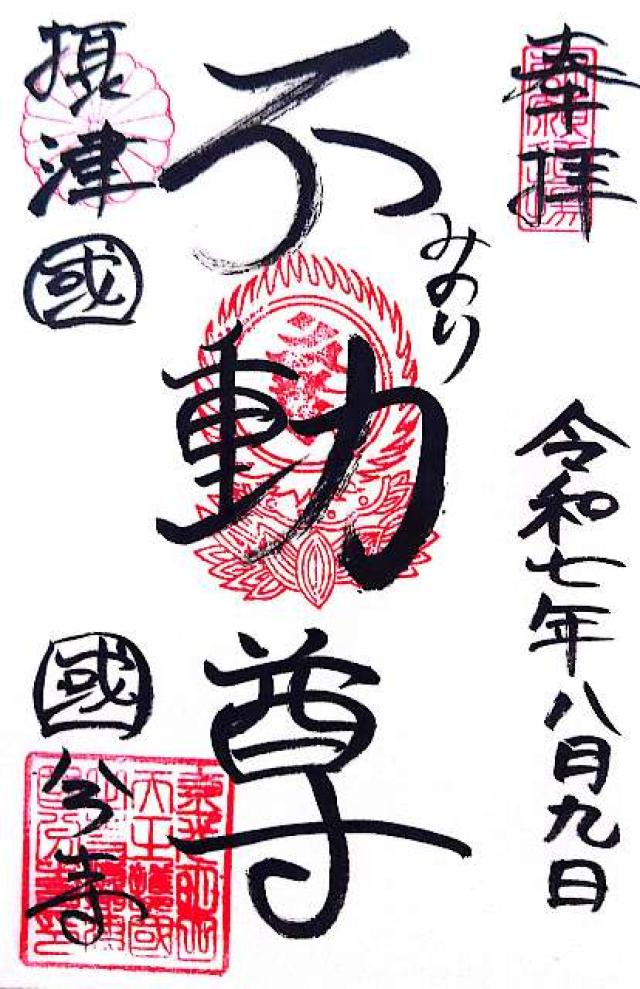 奉拝
令和七年八月九日
みのり
不動尊
摂津國
國分寺